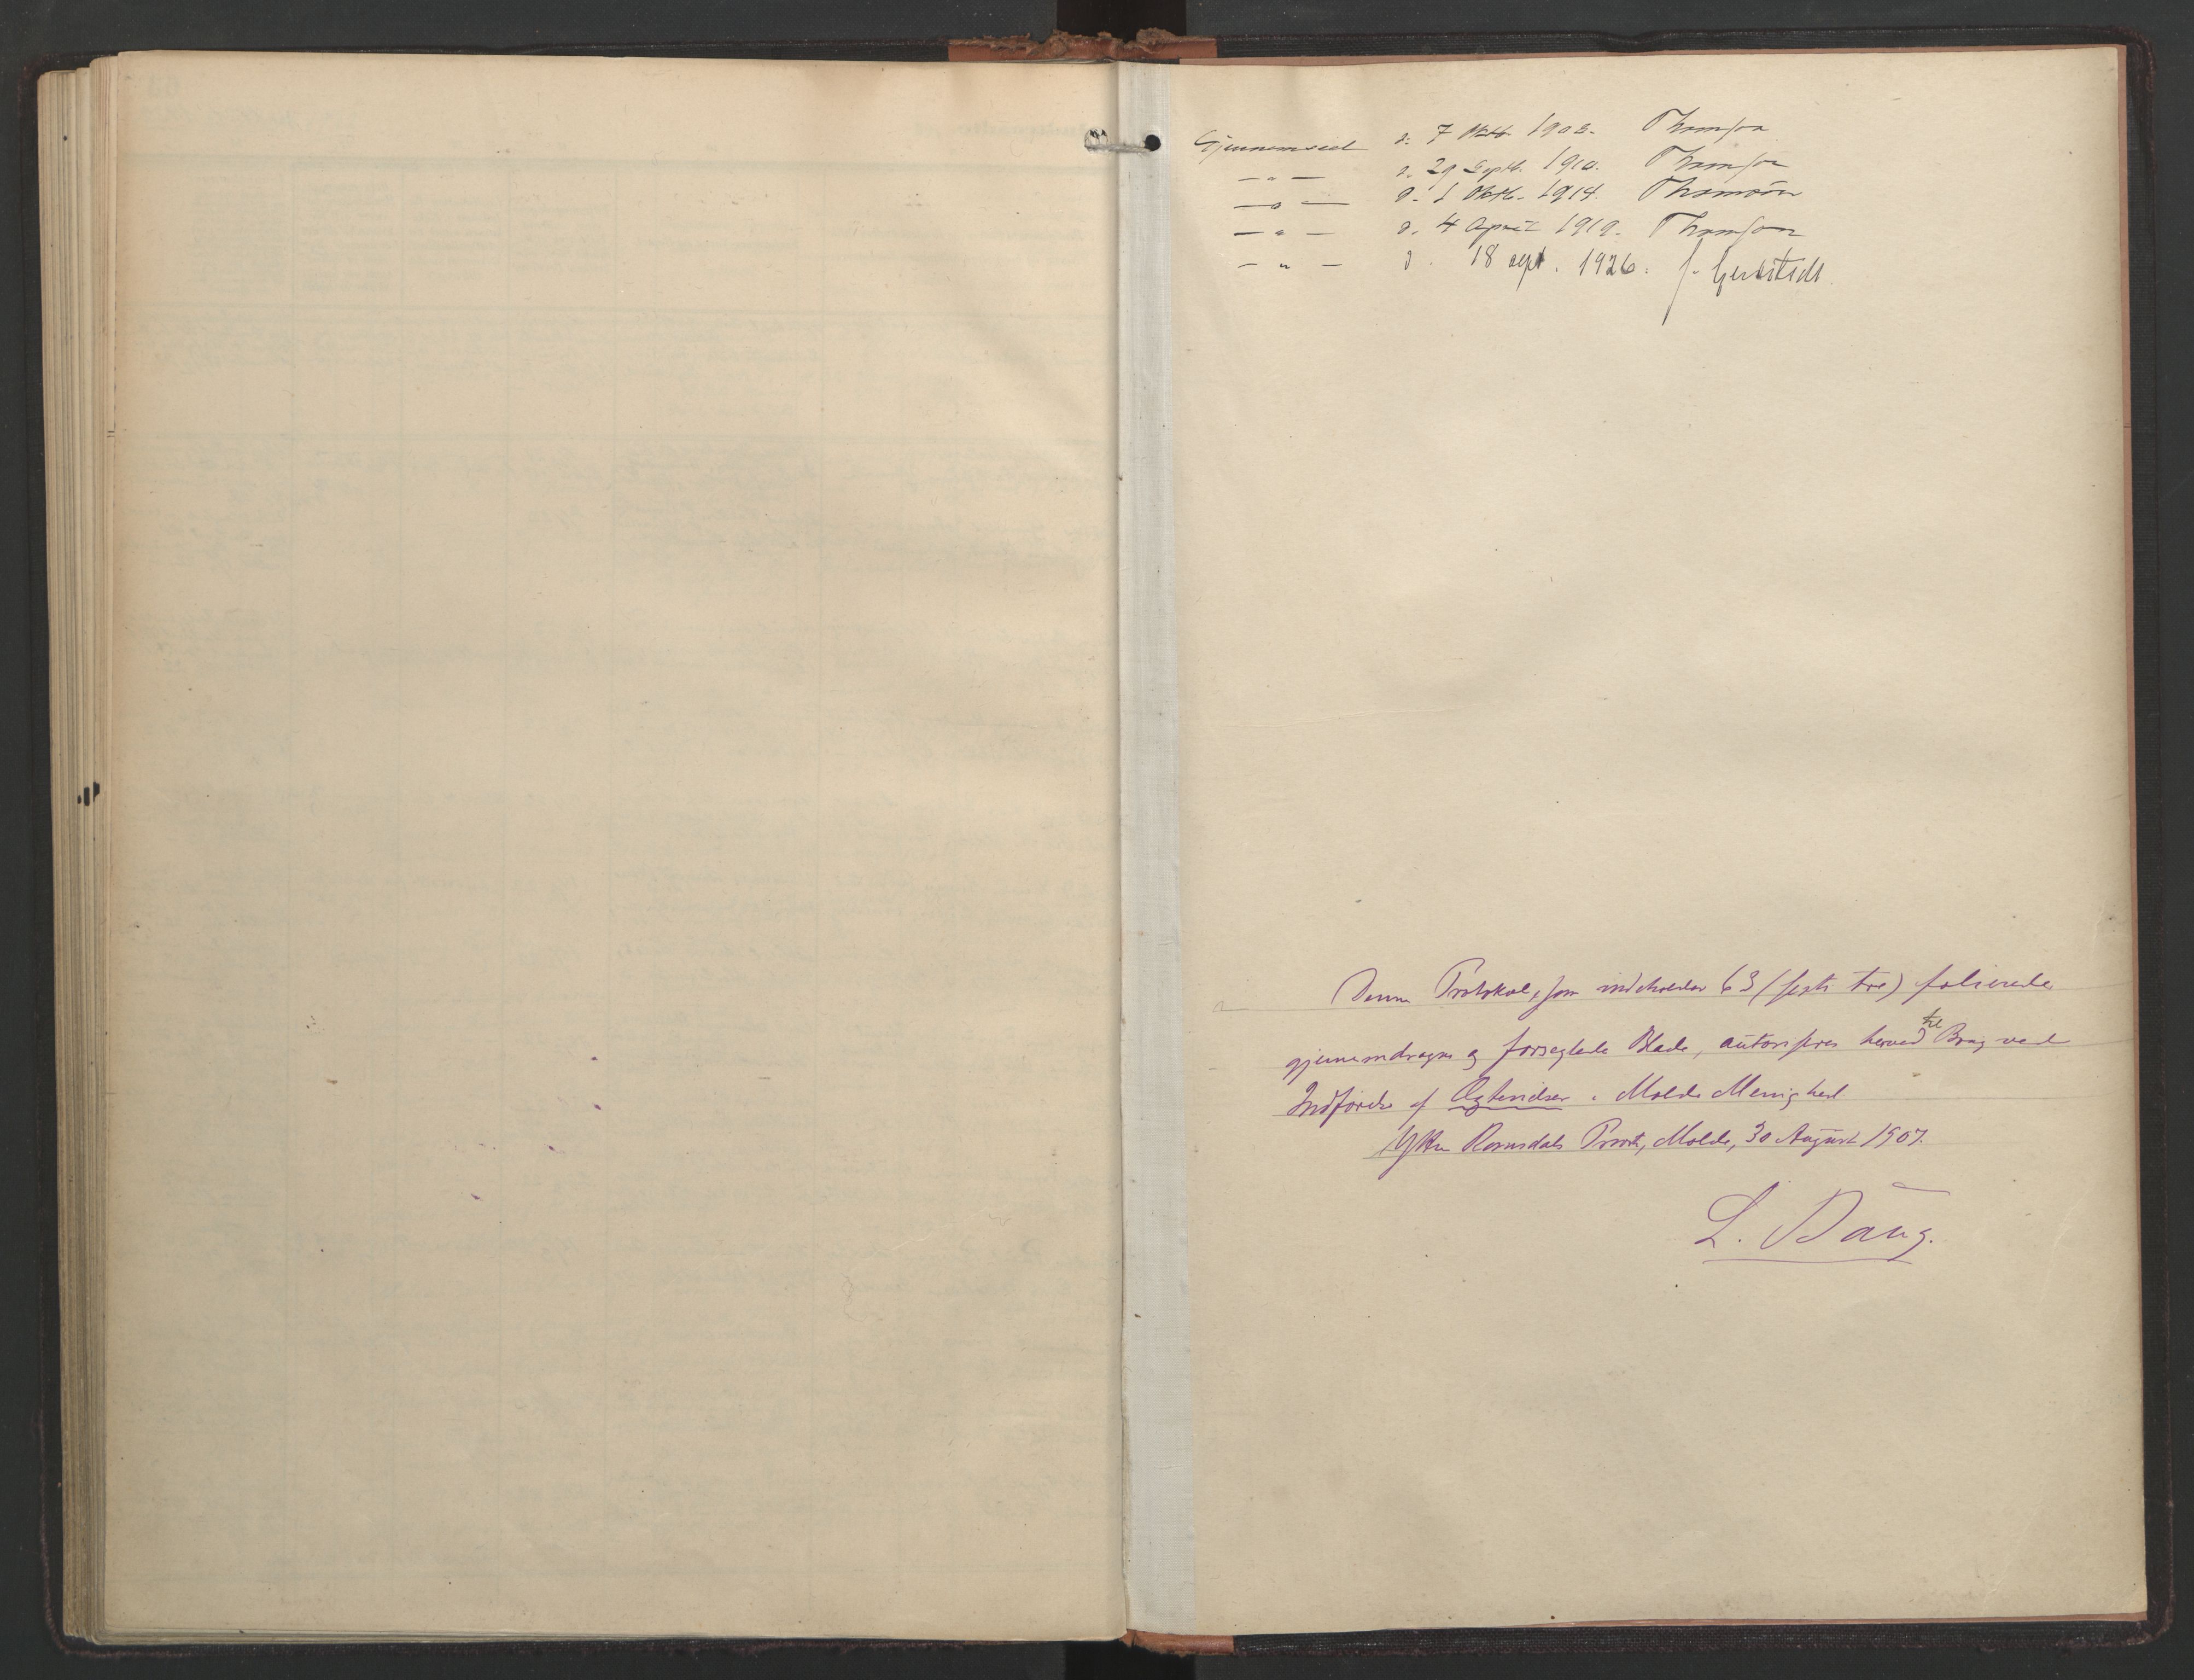 Gjennemseet d: 7 Oktb. 1908. Thomson
— " — d. 29 Septb. 1910. Thomson
— " — d. 1 Oktb. 1914. Thomson
— " — d. 4 April 1919. Thomson
— " — d. 18 sept. 1926.
Denne Protokol, som indeholder 63 (sexti tre) folierede
gjennemdragne og forseglede Blade, autoriseres herved til Brug ved
Indførelse af Ægtevidede i Molde Menighed
Ytre Romsdals Prosti, Molde, 30 August 1907.
L. Daug.